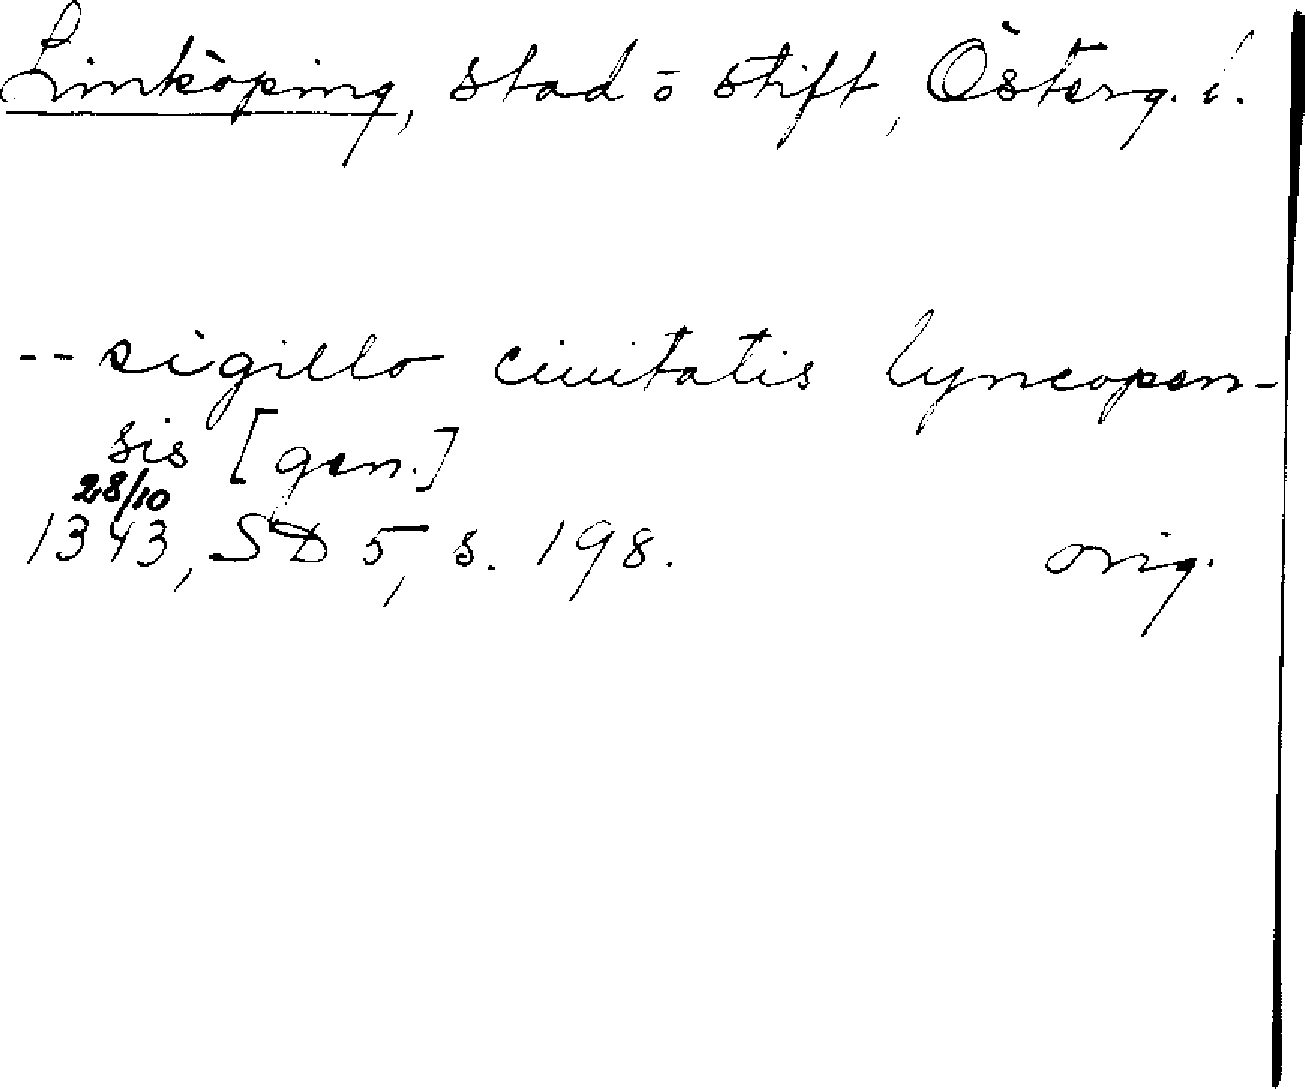 Linköping, stad o stift, Österg. l.
-- sigillo ciuitatis lyncopen-
sis [gen.]
28/10
1343, SD 5, s. 198. orig.